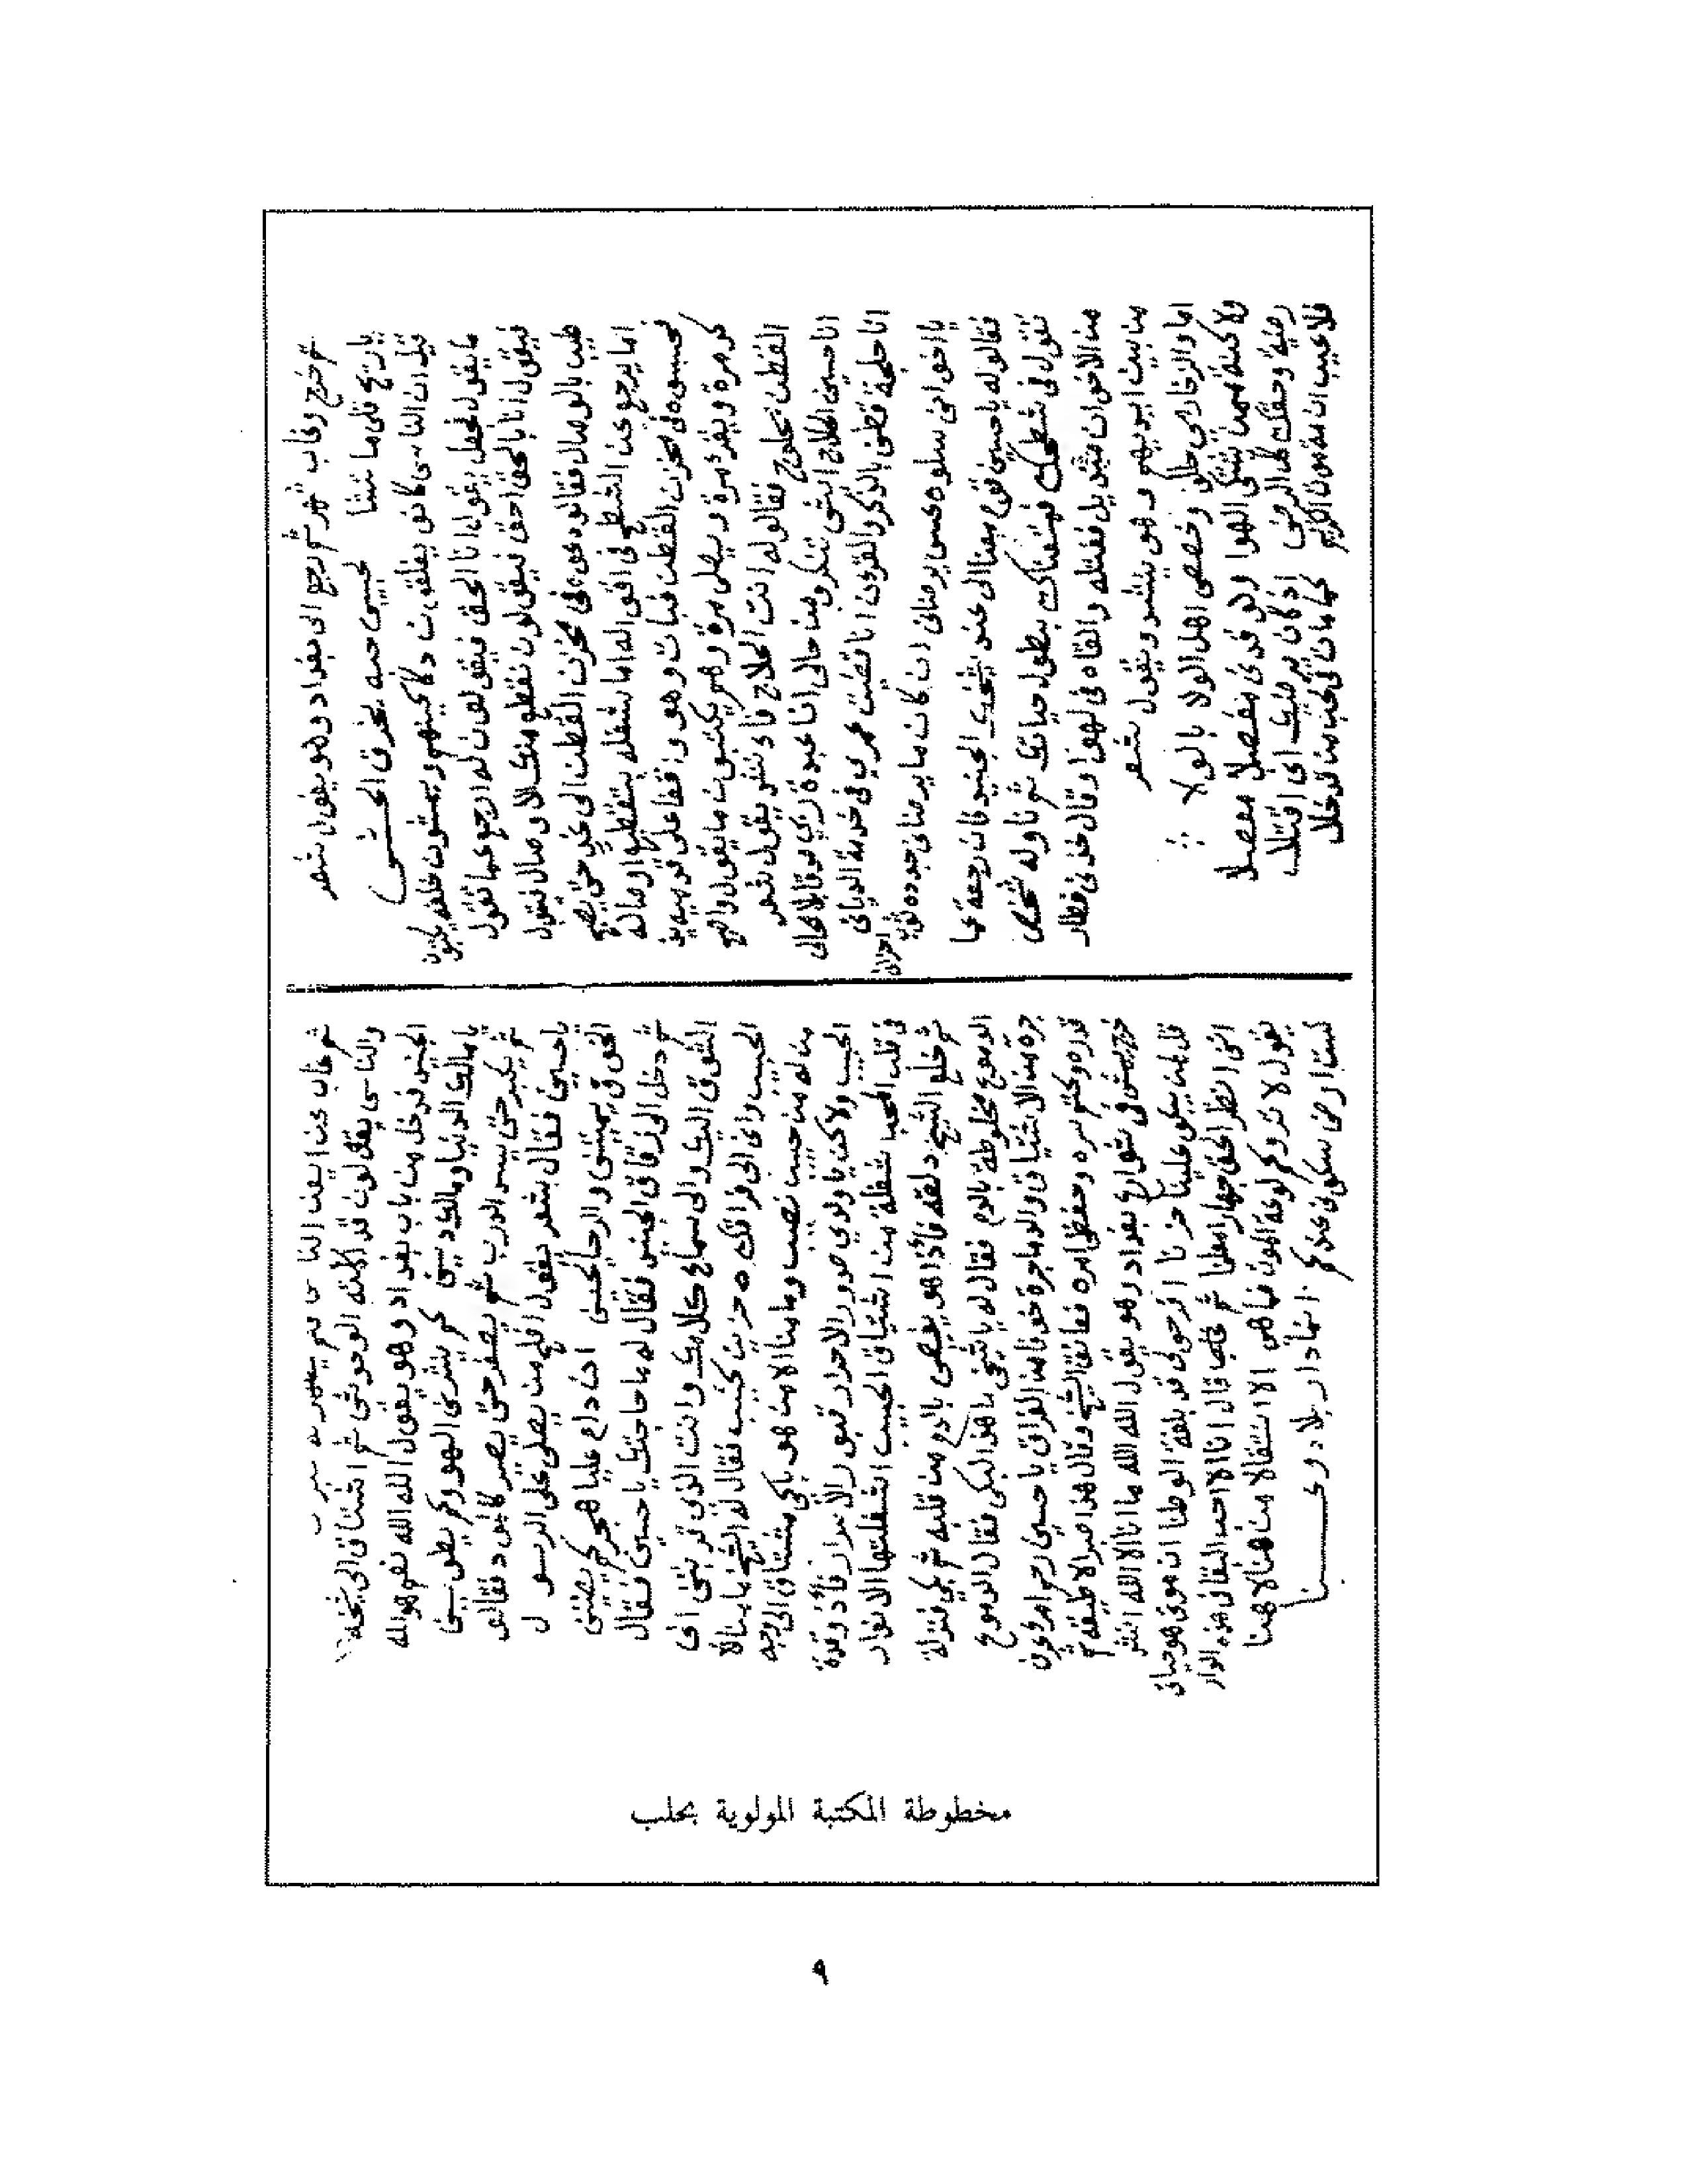 ثم خرج وغاب شهر ثم رجع الى بغداد وهو يقول شعر
ياريح قلى ما تشا لحبيبى حبه يحرق الحشى
قيل ان الناس كانو يغلقون دكاكينهم ويمشون خلفه يكتبون
ما يقول فجعل يقول انا الحق فيقولون له ارجع عما تقول
فيقول انا بالحق احق فيقولون نقطع منك الاوصال فيقول
طيب بالوصال فقالو دعوه فى مخزن القطن الى غد حتى يصبح
اما يرجع عن الشطح فى اقواله اما نشغله بتقطيع اوصاله
فحبسوه فى مخزن القطن فبات وهو واقفا على قدميه يذ
كر مرة ويقرء مرة ويصلى مرة وهم يكتبون ما يقول واصبح
القطن محلوج فقالو له انت الحلاج يقول شعر
انا حسين الحلاج ايش تنكرو من حالى انا عبدة ربى
انا حلجة قطنى بالذكر والقرءن انا قضيت عمرى فى خدمة الديانى
يا اخوانى سلوه عسى يرضانى ان كان ما يرضانى احزانى
فقالو له ياحسين قوم معنا الى عند الشيخ الجنيد فان رجعة عما
تقول فى شطحك بطول حياتك ثم ناوله شخص
من الاخوان منديل ففتله والقاه فى الهوا وقال
وهو ينشد ويقول شعر
اما والذى اهل الولا بالولا
مهما تشكى الهوا ولو قدنى مفصلا مفصلا
رضية وحقك كل الرضى اذ كان يرضيك انى اقتلا
فلا عيب ان موت الكرام كما مات فى الحب من قد خلا
ثم غاب عن اعين الناس
والناس يقولون قد اكلته الوحوش ثم اشتاق الى شيخه
الجنيد فدخل من باب بغداد وهو يقول الله الله نعم هو الله
يا مالك الدنيا ومالك دينى كم ينشرنى الهوى وكم يطوينى
ثم يكبر حتى يسد الدرب ثم يصغر حتى يصير فقالو
ياحسين فقال بشعر يقول افلح من يصلى على الرسول
الخوف يميتنى والرجا يحيينى ان دام عليا هجركم يضنينى
ثم دخل الى زقاق الجنيد فقال له ما حاجتك ياحسين فقال
الشوق اليك والى سماع كلامك وانت الذى قربتنى الى
الحبيب وانى الى فراقك حزين كئيب فقال له الشيخ ما منا الا
من له من حبيب نصيب وما منا الا من هو باكى مشتاق الى وجه
الحبيب ولاكن يا ولدى صدور الاحرار قبور الاسرار
فى قلب المحب شعلة من اشتياق الحبيب اشغلتها الانوار
ثم خلع الشيخ دلقه فاذا هو يفيض بالدم من قلبه ثم بكى فنزلة
الدموع مخلوطة بالدم فقال له يا شيخى ما هذا البكى فقال الدموع
جرة من الاشتياق والدما جرة خوفا من الفراق ياحسين
قدره وكتم سره وحفظ امره فعانقه الشيخ وقال هذا
خرج يمشى فى شوارع بغداد وهو يقول الله الله ما انا الا الله
قل لمن يبكو علينا حزنا افرحو لى قد بلغة الوطنا ان موتى هو حياتى
اننى انظر الحق جهارا معلنا ثم غاب
يقول لا تروعكم لوعة الموت فما هى الا انتقالا من هنا لا هنا
ليستا ارضى سكونى عندكم انها دار بلا وعنا
مخطوطة المكتبة المولوية بحلب
٩